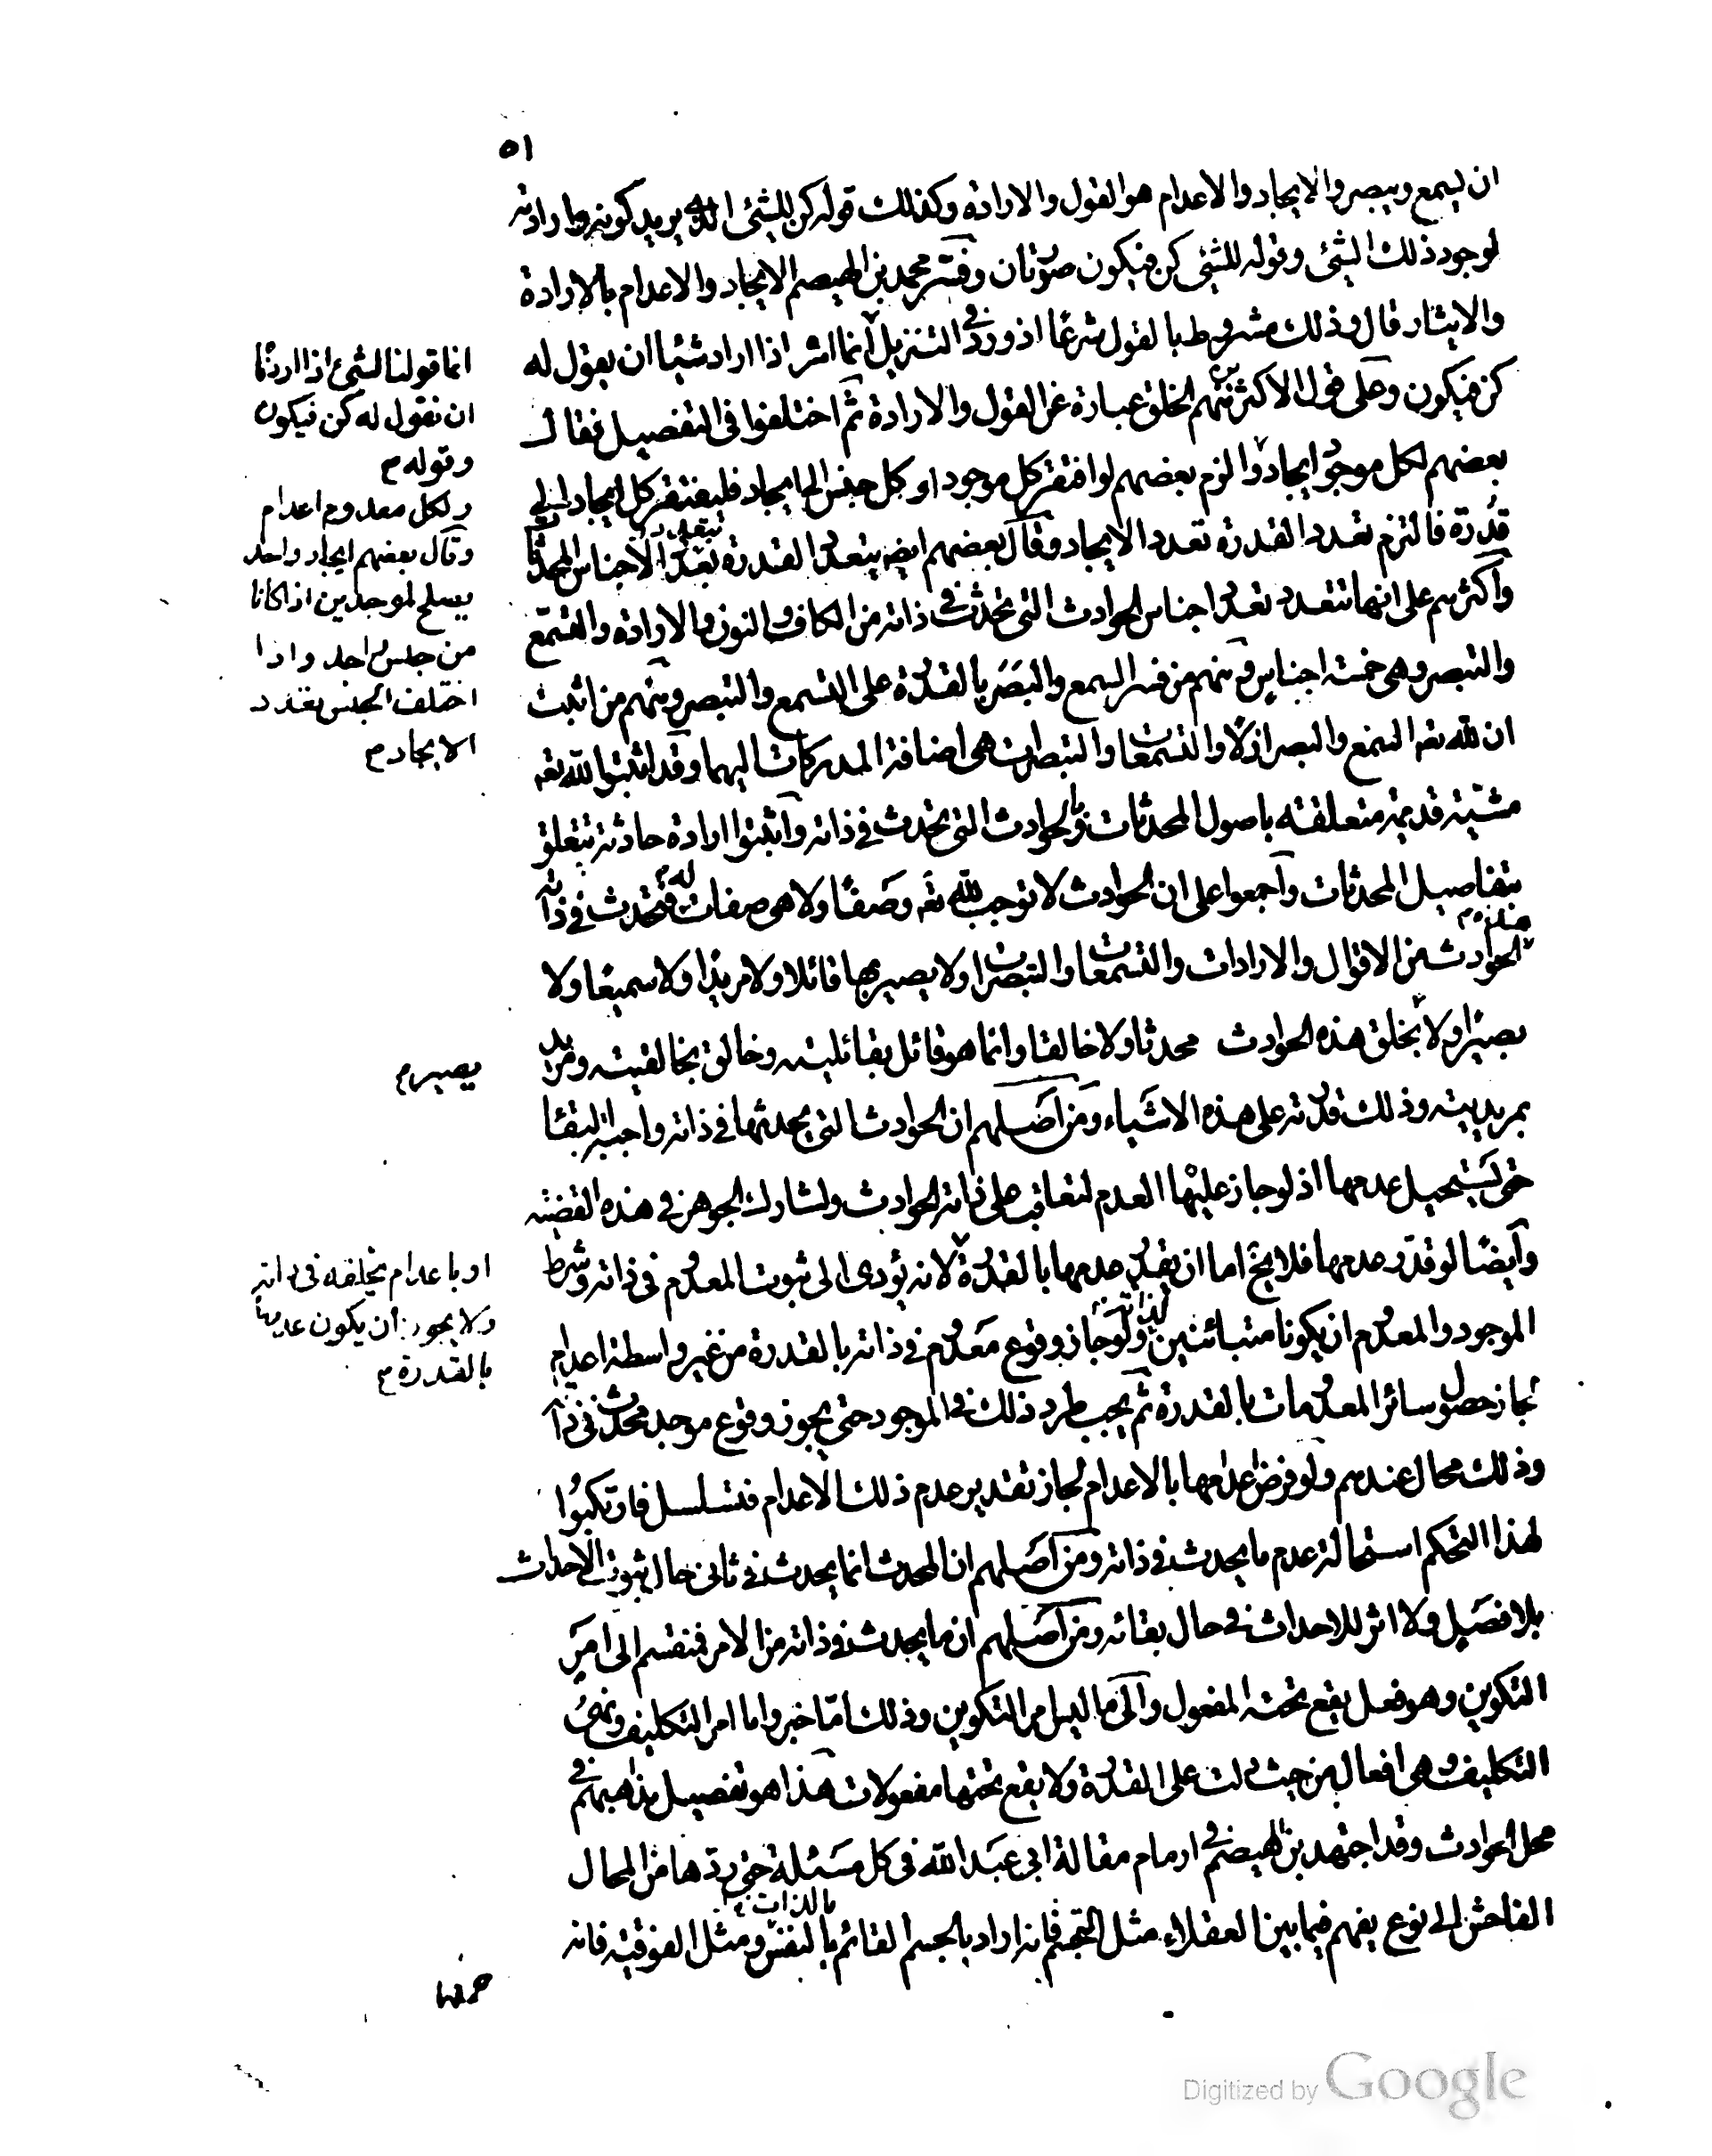 ٥١
ان يسمع ويبصر والايجاد والاعدام هو القول والارادة وكذلك قوله كن للشئ الذى يريد كونه وارادته
لوجود ذلك الشئ وقوله للشئ كن فيكون صوتان وفسر محمد بن الهيصم الايجاد والاعدام بالارادة
والايثار قال وذلك مشروط بالقول شرعًا اذ ورد فى التنزيل انما امره اذا اراد شيئا ان يقول له
كن فيكون وعلى قول الاكثرين منهم الخلق عبارة عن القول والارادة ثم اختلفوا فى التفصيل فقال
بعضهم لكل موجود ايجاد والزم بعضهم لو افتقر كل موجود او كل جنس الى ايجاد فليفتقر كل ايجاد الى
قدرة فالتزم تعدد القدرة تعدد الايجاد وقال بعضهم ايضا يتعدد القدرة بعدد الاجناس المحدثات
واكثرهم على انها تتعدد بعدد اجناس الحوادث التى تحدث فى ذاته من الكاف والنون والارادة والتسمع
والتبصر وهى خمسة اجناس ومنهم من فسر السمع والبصر بالقدرة على التسمع والتبصر ومنهم من اثبت
ان لله تعه السمع والبصر ازلًا والتسمعات والتبصرات هى اضافة المدركات اليهما وقد اثبتوا لله تعه
مشيّة قديمة متعلقة باصول المحدثات وبالحوادث التى تحدث فى ذاته واثبتوا ارادة حادثة تتعلق
بتفاصيل المحدثات واجمعوا على ان الحوادث لا توجب لله تعه وصفًا ولا هى صفات له فتحدث فى ذاته
هذه
الحوادث من الاقوال والارادات والتسمعات والتبصرات ولا يصير بها قائلا ولا مريدًا ولا سميعًا ولا
بصيرًا ولا بخلق هذه الحوادث محدثا ولا خالقا وانما هو قائل بقائليته وخالق بخالقيته ومريد
بمريديته وذلك قدرته على هذه الاشياء ومن اصلهم ان الحوادث التى يحدثها فى ذاته واجبة البقاء
حتى يستحيل عدمها اذ لو جاز عليها العدم لتعاقب على ذاته الحوادث ولشارك الجوهر فى هذه القضية
وايضًا لو قدّر عدمها فلا يخ اما ان يقدر عدمها بالقدرة لانه يؤدى الى ثبوت المعدوم فى ذاته وشرط
الموجود والمعدوم ان يكونا متبائنين لذاته ولو جاز وقوع معدوم فى ذاته بالقدرة من غير واسطة اعدام
لجاز حصول سائر المعدومات بالقدرة ثم يجب طرد ذلك فى الموجود حتى يجوز وقوع موجد محدث فى ذاته
وذلك محال عندهم ولو فرض اعدامها بالاعدام لجاز تقدير عدم ذلك الاعدام فتسلسل فارتكبوا
لهذا التحكم استحالة عدم ما يحدث فى ذاته ومن اصلهم ان المحدث انما يحدث فى ثانى حال ثبوت الاحداث
بلا فصل ولا اثر للاحداث فى حال بقائه ومن اصلهم ان ما يحدث فى ذاته من الامر فمنقسم الى امر
التكوين وهو فعل يقع تحته المفعول والى ما ليس من التكوين وذلك امّا خبر واما امر التكليف ونهى
التكليف وهى افعال من حيث دلت على القدرة ولا يقع تحتها مفعولات هذا هو تفصيل مذاهبهم فى
محل الحوادث وقد اجتهد بن الهيضم فى ارمام مقالة ابى عبد الله فى كل مسئلة حتى ردّها من المحال
الفاحش الى نوع يفهم فيما بين العقلاء مثل التجسم فانه اراد بالجسم القائم بالنفس ومثل الفوقية فانه
بالذات
انما قولنا لشئ اذا اردنا
ان نقول له كن فيكون
وقوله م
ولكل معدوم اعدام
وقال بعضهم ايجاد واحد
يصلح لموجدين اذا كانا
من جنس واحد واذا
اختلف الجنس تعدد
الايجاد م
يصير م
او باعدام يخلقه فى ذاته
ولا يجوز ان يكون عدمها
بالقدرة م
حملها
Digitized by Google